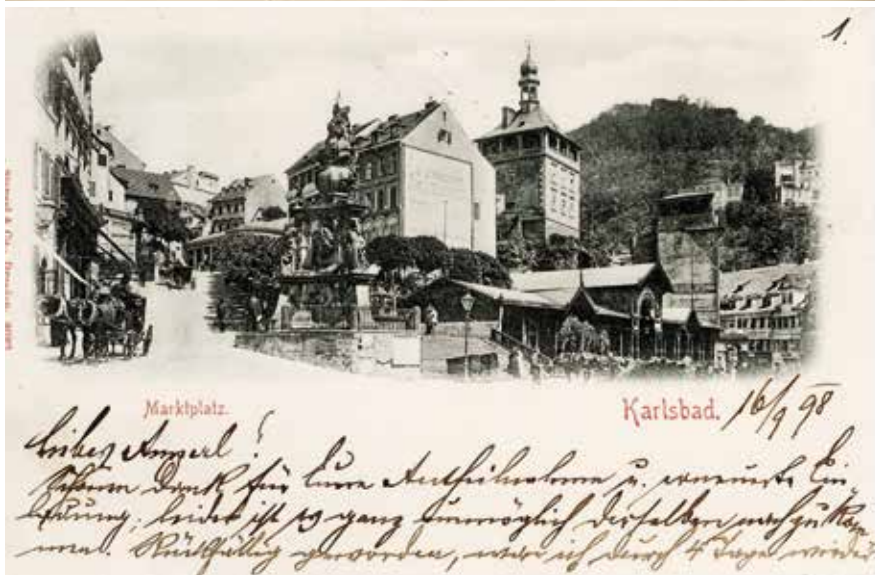 1.
Marktplatz.
Karlsbad. 16/9 98
Liebes Annerl!
Schönen Dank für Eure Antheilnahme u. erneuerte Ein-
ladung; leider ist es ganz unmöglich derselben nachzukom-
men. Rückfällig geworden, war ich durch 4 Tage wieder